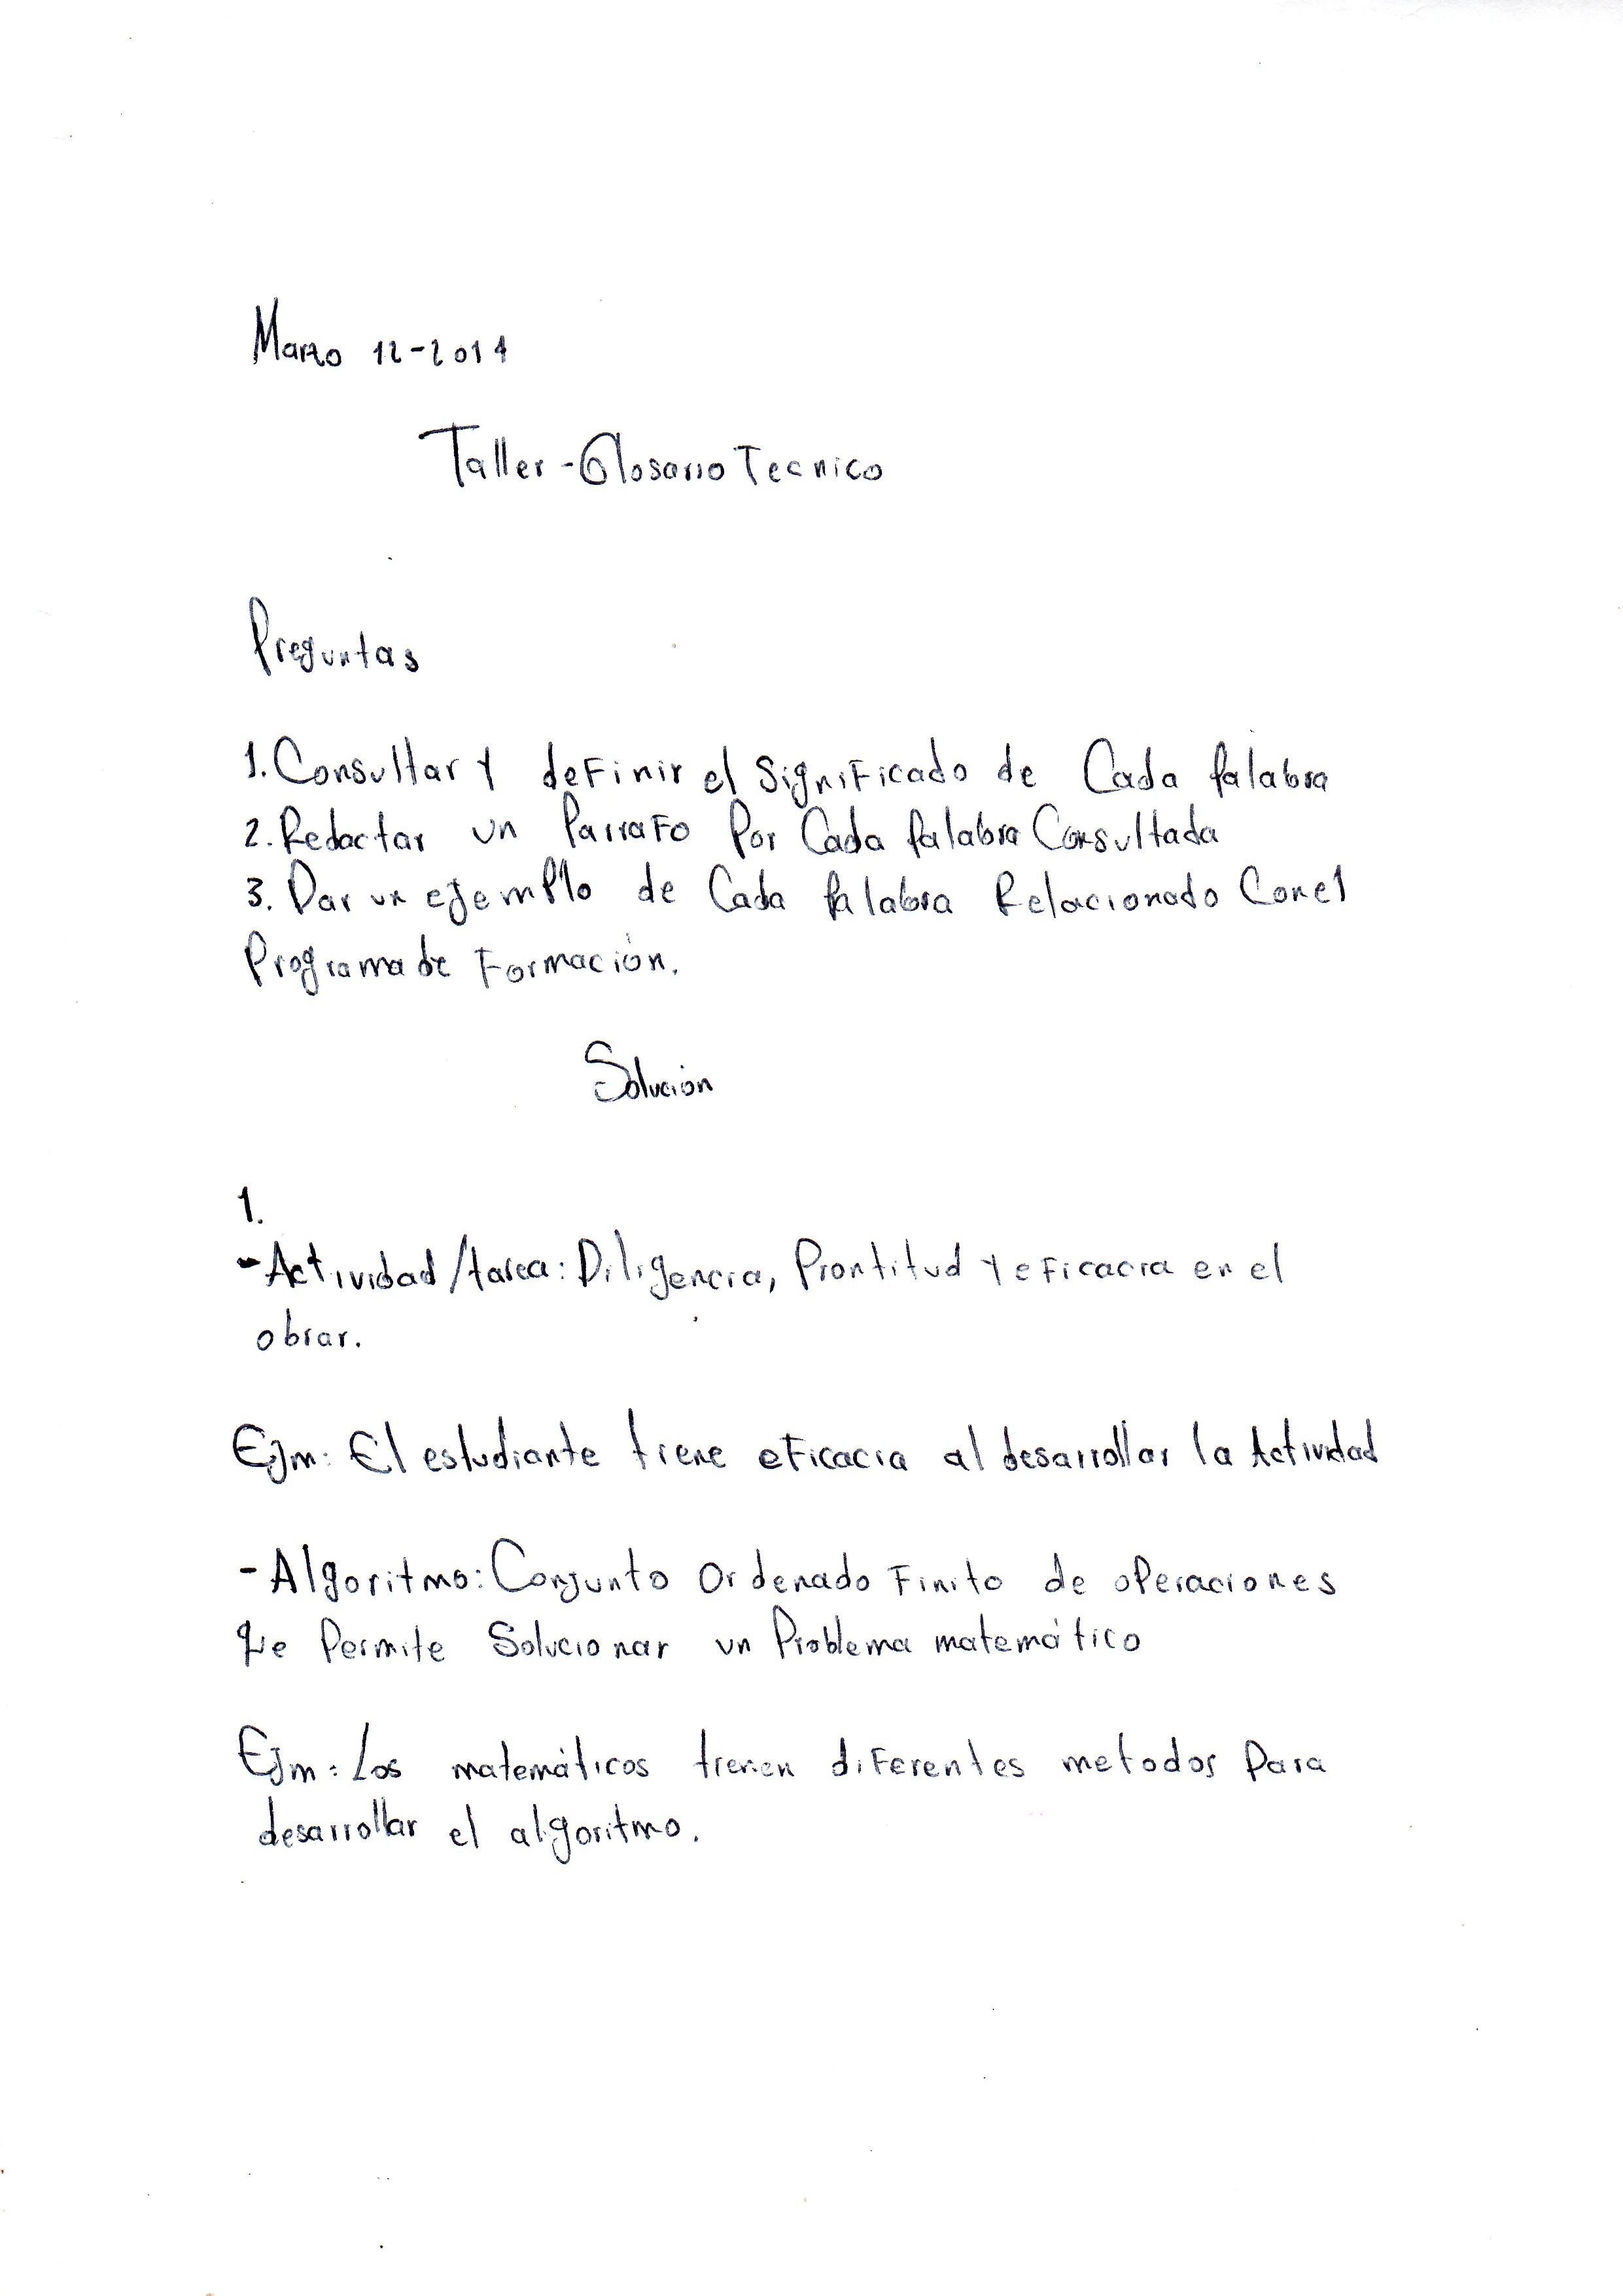 Marzo 12-2014
Taller-Glosario Tecnico
Preguntas
1. Consultar y definir el significado de Cada Palabra
2. Redactar un Parrafo Por Cada Palabra Consultada
3. Dar un ejemplo de Cada Palabra Relacionado Con el
Programa de Formación.
Solución
1.
- Actividad/tarea: Diligencia, Prontitud y eficacia en el
obrar.
Ejm: El estudiante tiene eficacia al desarrollar la Actividad
- Algoritmo: Conjunto Ordenado Finito de operaciones
que Permite Solucionar un Problema matemático
Ejm: Los matemáticos tienen diferentes metodos Para
desarrollar el algoritmo.